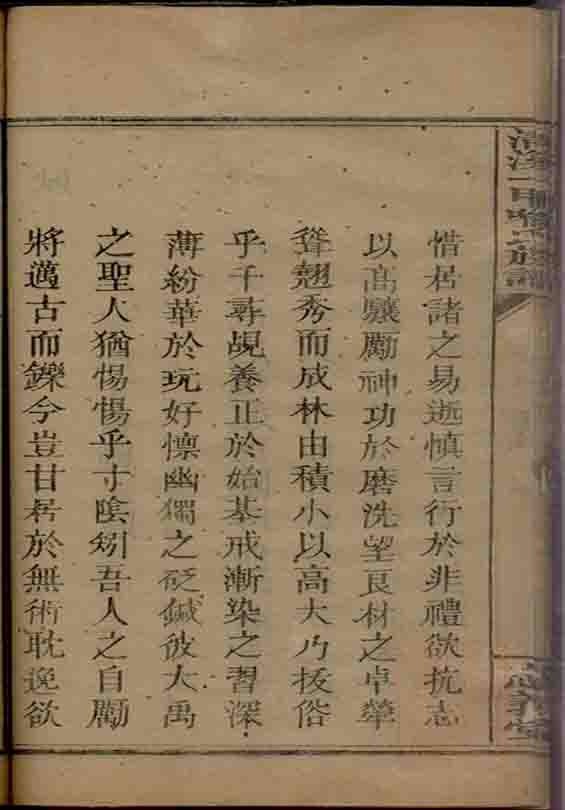 惜居諸之易逝慎言行於非禮欲抗志
以高驤勵神功於磨洗望良材之卓犖
聳翹秀而成林由積小以高大乃抜俗
乎千尋覘養正於始基戒漸染之習深
薄紛華於玩好懍幽獨之砭鍼彼大禹
之聖人猶惕惕乎寸陰矧吾人之自勵
將邁古而鑠今豈甘居於無術耽逸欲